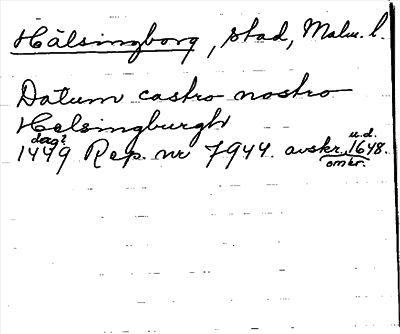 Hälsingborg, stad, Malm. l.
Datum castro nostro
Helsingburgh
1449 dag? Rep. nr 7944. avskr. u.d. omkr. 1648.